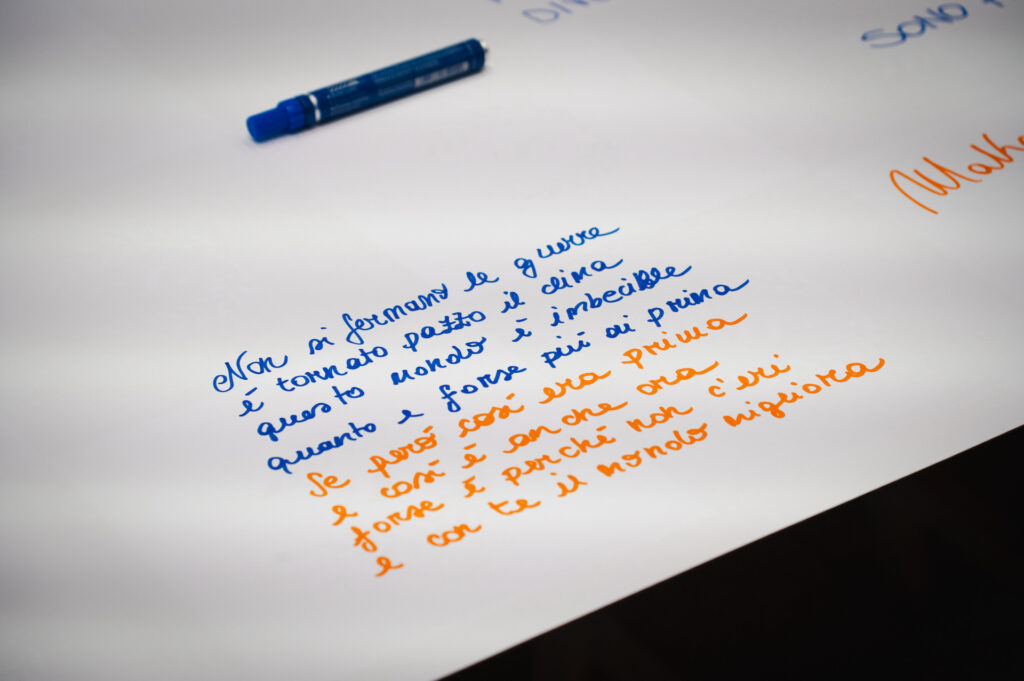 SONO
Non si fermano le guerre
é tornato pazzo il clima
questo mondo é imbecille
quanto e forse piú di prima
Se peró cosí era prima
e cosí é anche ora
forse é perché non c'eri
e con te il mondo migliora